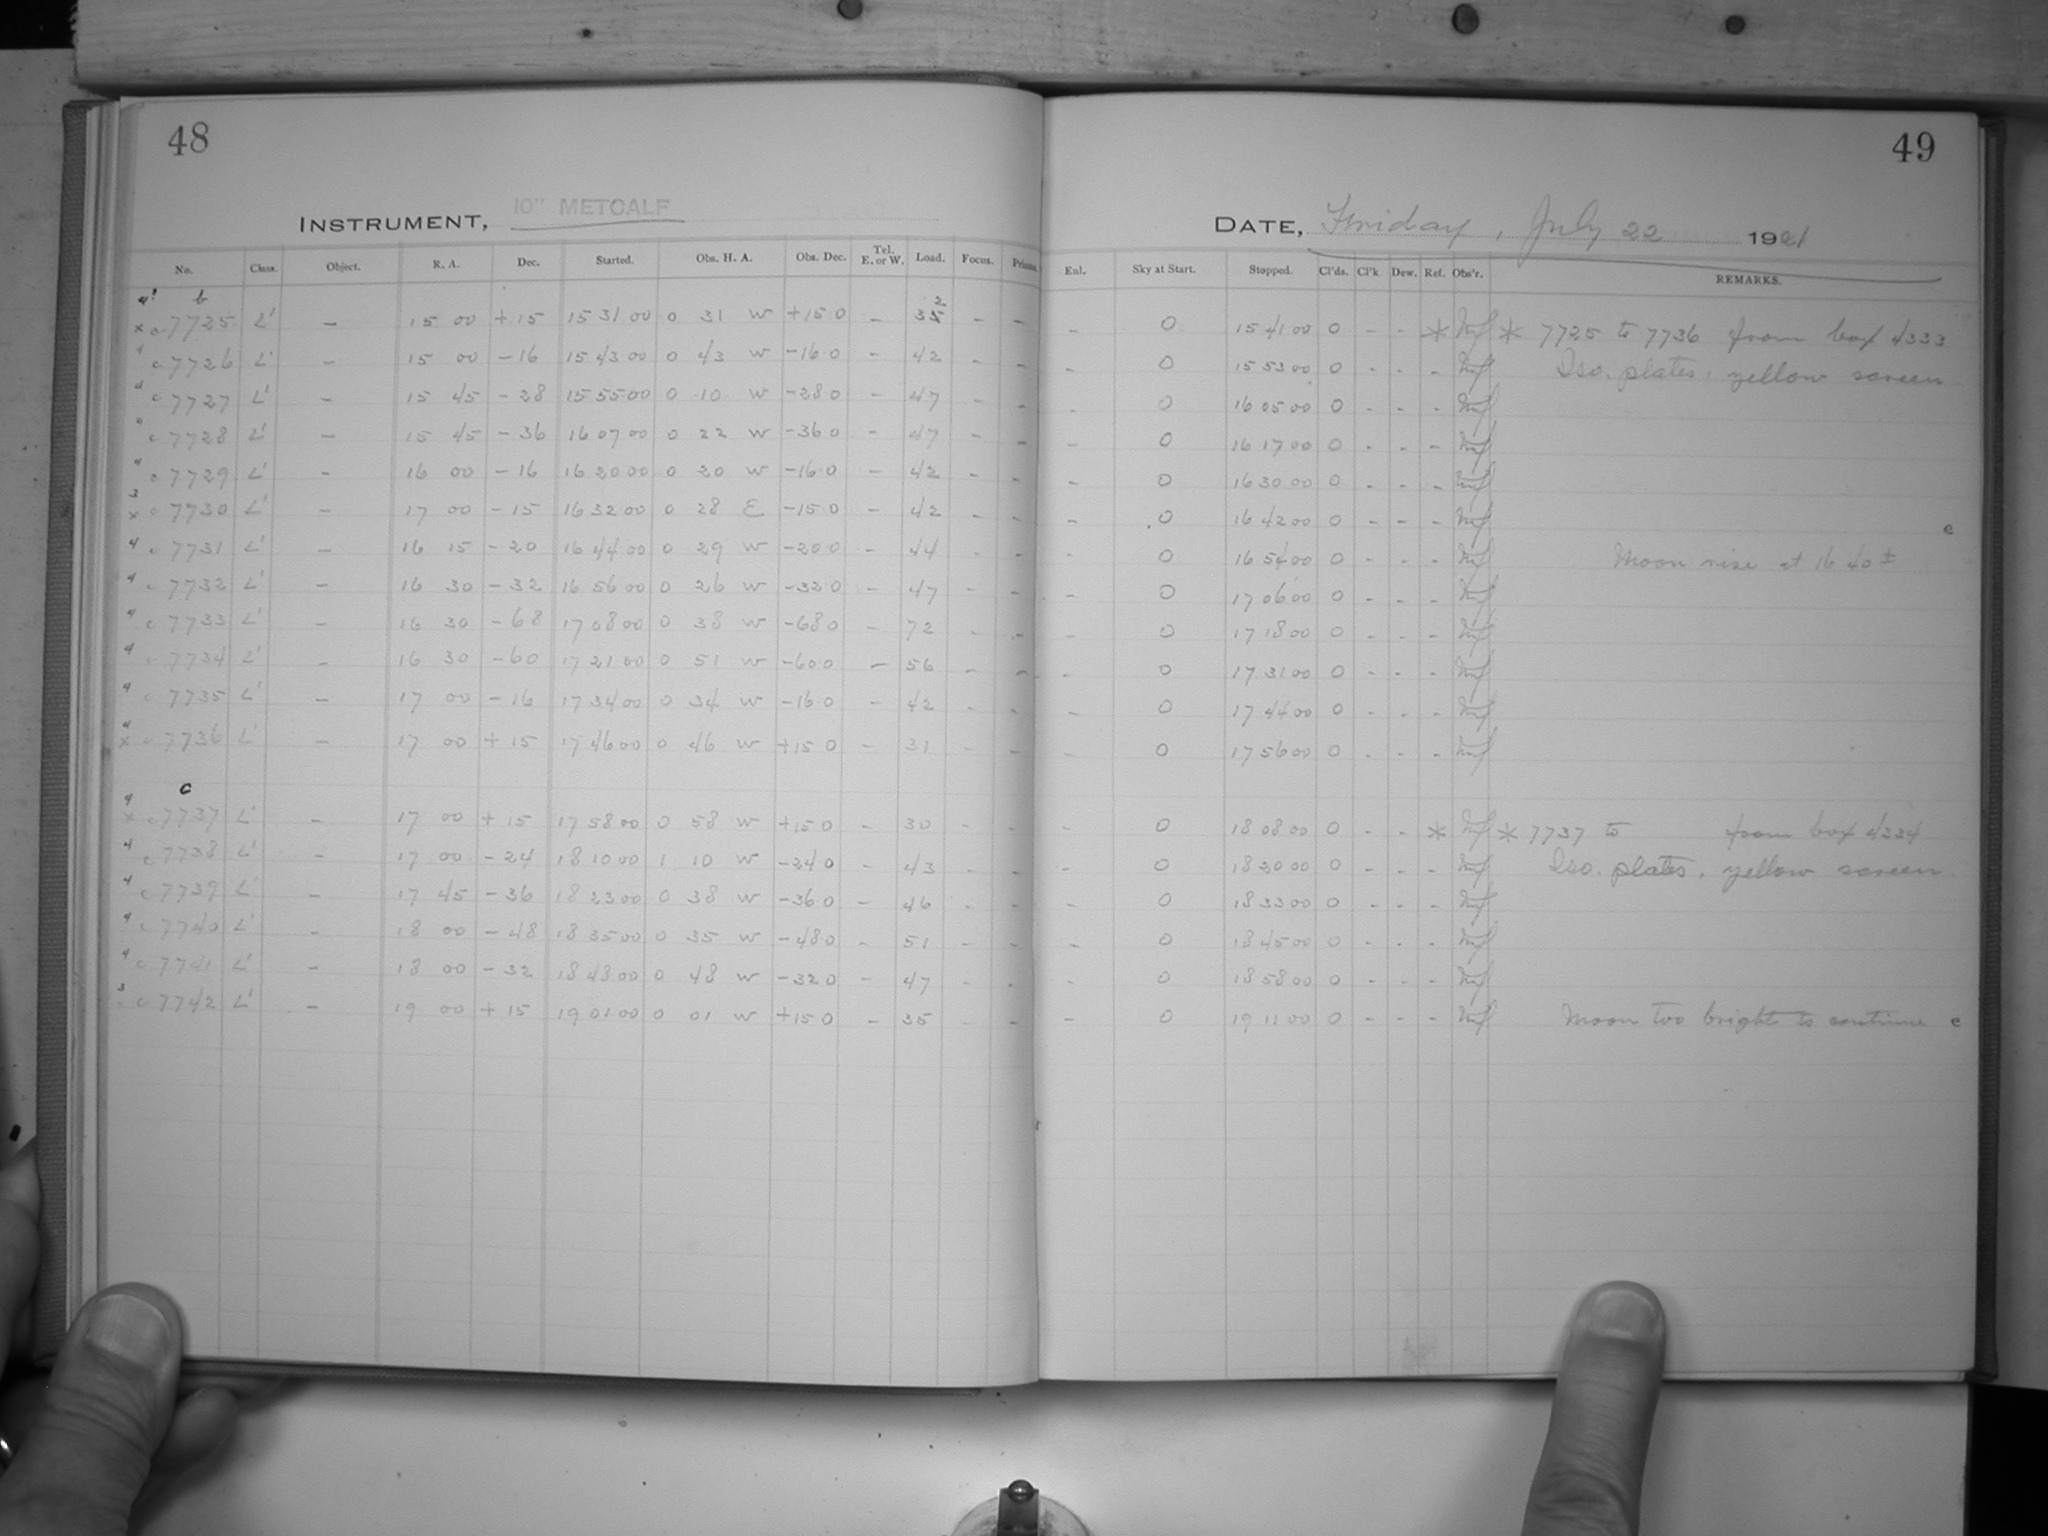 48
INSTRUMENT, 10" METCALF
No. Class. Object. R. A. Dec. Started. Obs. H. A. Obs. Dec. Tel. E. or W. Load. Focus. Prisms.
b
7725 L' - 15 00 +15 15 31 00 0 31 W +15 0 - - -
c 7726 L' - 15 00 -16 15 43 00 0 43 W -16 0 - 42 - -
c 7727 L' - 15 45 -28 15 55 00 0 10 W -28 0 - 47 - -
c 7728 L' - 15 45 -36 16 07 00 0 22 W -36 0 - 47 - -
c 7729 L' - 16 00 -16 16 20 00 0 20 W -16 0 - 42 - -
c 7730 L' - 17 00 -15 16 32 00 0 28 E -15 0 - 42 - -
c 7731 L' - 16 15 -20 16 44 00 0 29 W -20 0 - 44 - -
c 7732 L' - 16 30 -32 16 56 00 0 26 W -32 0 - 47 - -
c 7733 L' - 16 30 -68 17 08 00 0 38 W -68 0 - 72 - -
c 7734 L' - 16 30 -60 17 21 00 0 51 W -60 0 - 56 - -
c 7735 L' - 17 00 -16 17 34 00 0 34 W -16 0 - 42 - -
c 7736 L' - 17 00 +15 17 46 00 0 46 W +15 0 - 31 - -
c
c 7737 L' - 17 00 +15 17 58 00 0 58 W +15 0 - 30 - -
c 7738 L' - 17 00 -24 18 10 00 1 10 W -24 0 - 43 - -
c 7739 L' - 17 45 -36 18 23 00 0 38 W -36 0 - 46 - -
c 7740 L' - 18 00 -48 18 35 00 0 35 W -48 0 - 51 - -
c 7741 L' - 18 00 -32 18 48 00 0 48 W -32 0 - 47 - -
c 7742 L' - 19 00 +15 19 01 00 0 01 W +15 0 - 35 - -
49
DATE, Friday, July 22 1921
Enl. Sky at Start. Stopped. Cl'ds. Cl'k. Dew. Ref. Obs'r. REMARKS.
- 0 15 41 00 0 - - * * 7725 to 7736 from box 4333
- 0 15 53 00 0 - - - Iso. plates, yellow screen
- 0 16 05 00 0 - - -
- 0 16 17 00 0 - - -
- 0 16 30 00 0 - - -
- 0 16 42 00 0 - - - e
- 0 16 54 00 0 - - - Moon rise at 16 40 ±
- 0 17 06 00 0 - - -
- 0 17 18 00 0 - - -
- 0 17 31 00 0 - - -
- 0 17 44 00 0 - - -
- 0 17 56 00 0 - - -
- 0 18 08 00 0 - - * * 7737 to from box 4334
- 0 18 20 00 0 - - - Iso. plates, yellow screen
- 0 18 33 00 0 - - -
- 0 18 45 00 0 - - -
- 0 18 58 00 0 - - -
- 0 19 11 00 0 - - - Moon too bright to continue e